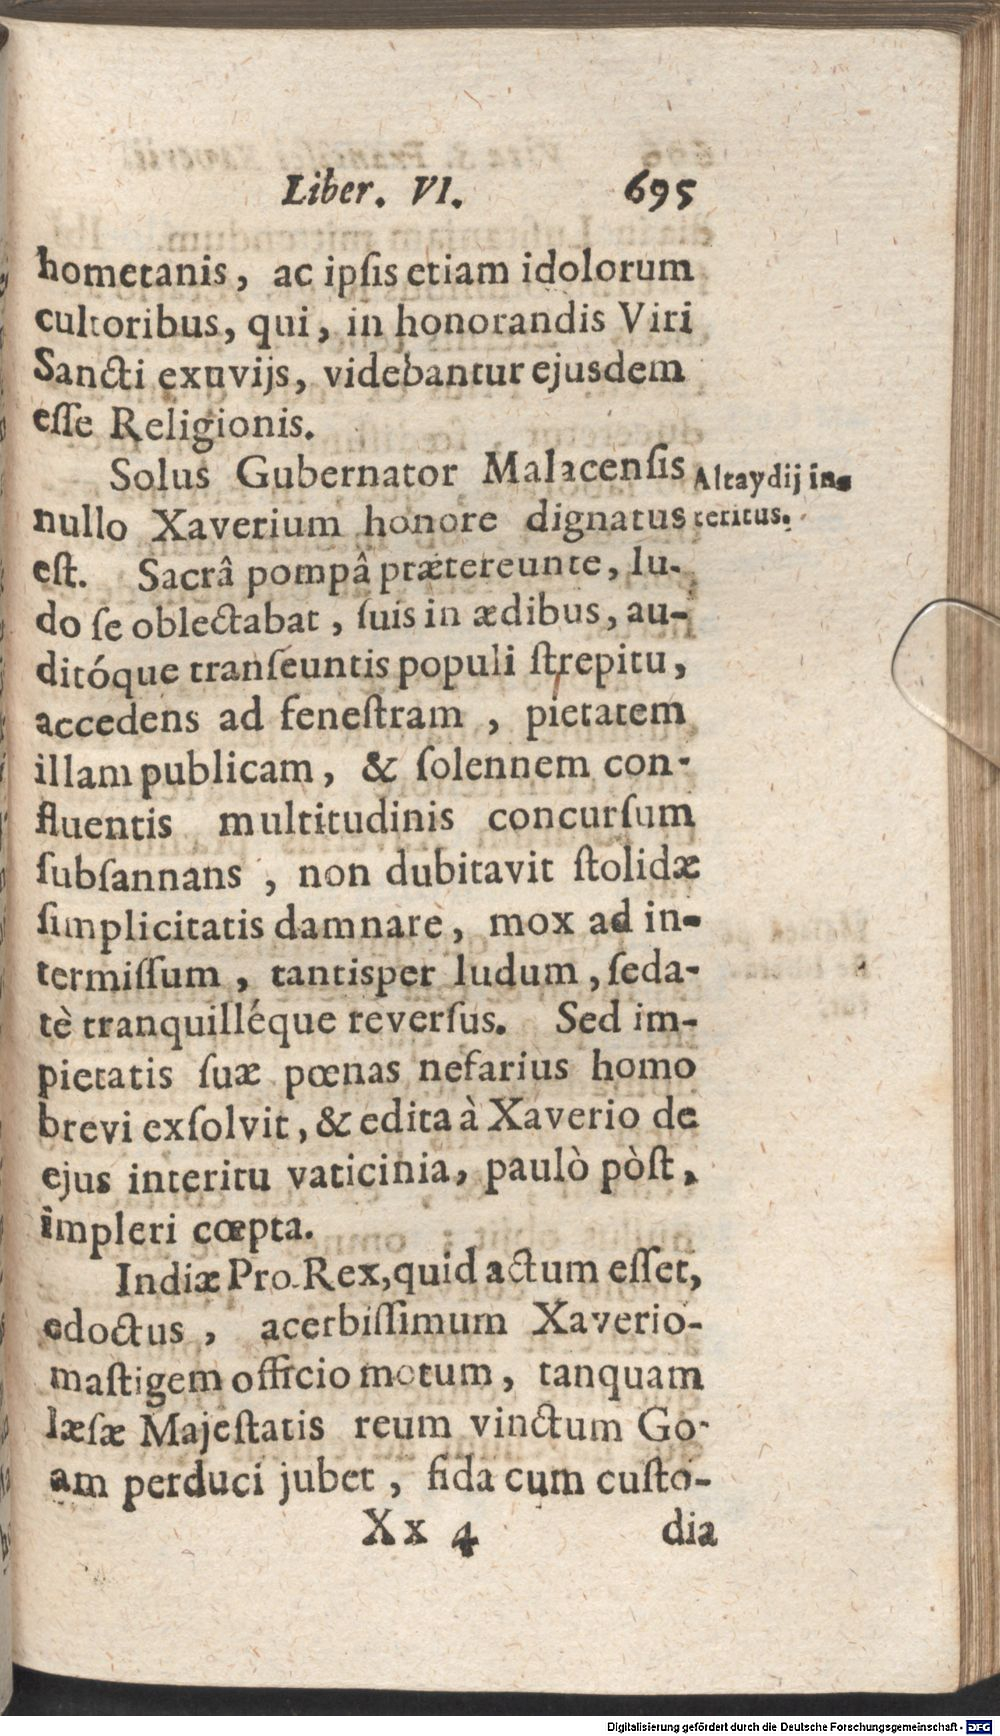 Liber. VI. 695
hometanis, ac ipſis etiam idolorum
cultoribus, qui, in honorandis Viri
Sancti exuvijs, videbantur ejusdem
eſſe Religionis.
Solus Gubernator Malacenſis
Altaydij in-
nullo Xaverium honore dignatus
teritus.
eſt. Sacrâ pompâ prætereunte, lu-
do ſe oblectabat, ſuis in ædibus, au-
ditóque tranſeuntis populi ſtrepitu,
accedens ad feneſtram, pietatem
illam publicam, & ſolennem con-
fluentis multitudinis concurſum
ſubſannans, non dubitavit ſtolidæ
ſimplicitatis damnare, mox ad in-
termiſſum, tantisper ludum, ſeda-
tè tranquilléque reverſus. Sed im-
pietatis ſuæ pœnas nefarius homo
brevi exſolvit, & edita à Xaverio de
ejus interitu vaticinia, paulò pòſt,
impleri cœpta.
Indiæ Pro-Rex, quid actum eſſet,
edoctus, acerbiſſimum Xaverio-
maſtigem officio motum, tanquam
læſæ Majeſtatis reum vinctum Go-
am perduci jubet, fida cum cuſto-
Xx 4 dia
Digitalisierung gefördert durch die Deutsche Forschungsgemeinschaft - DFG